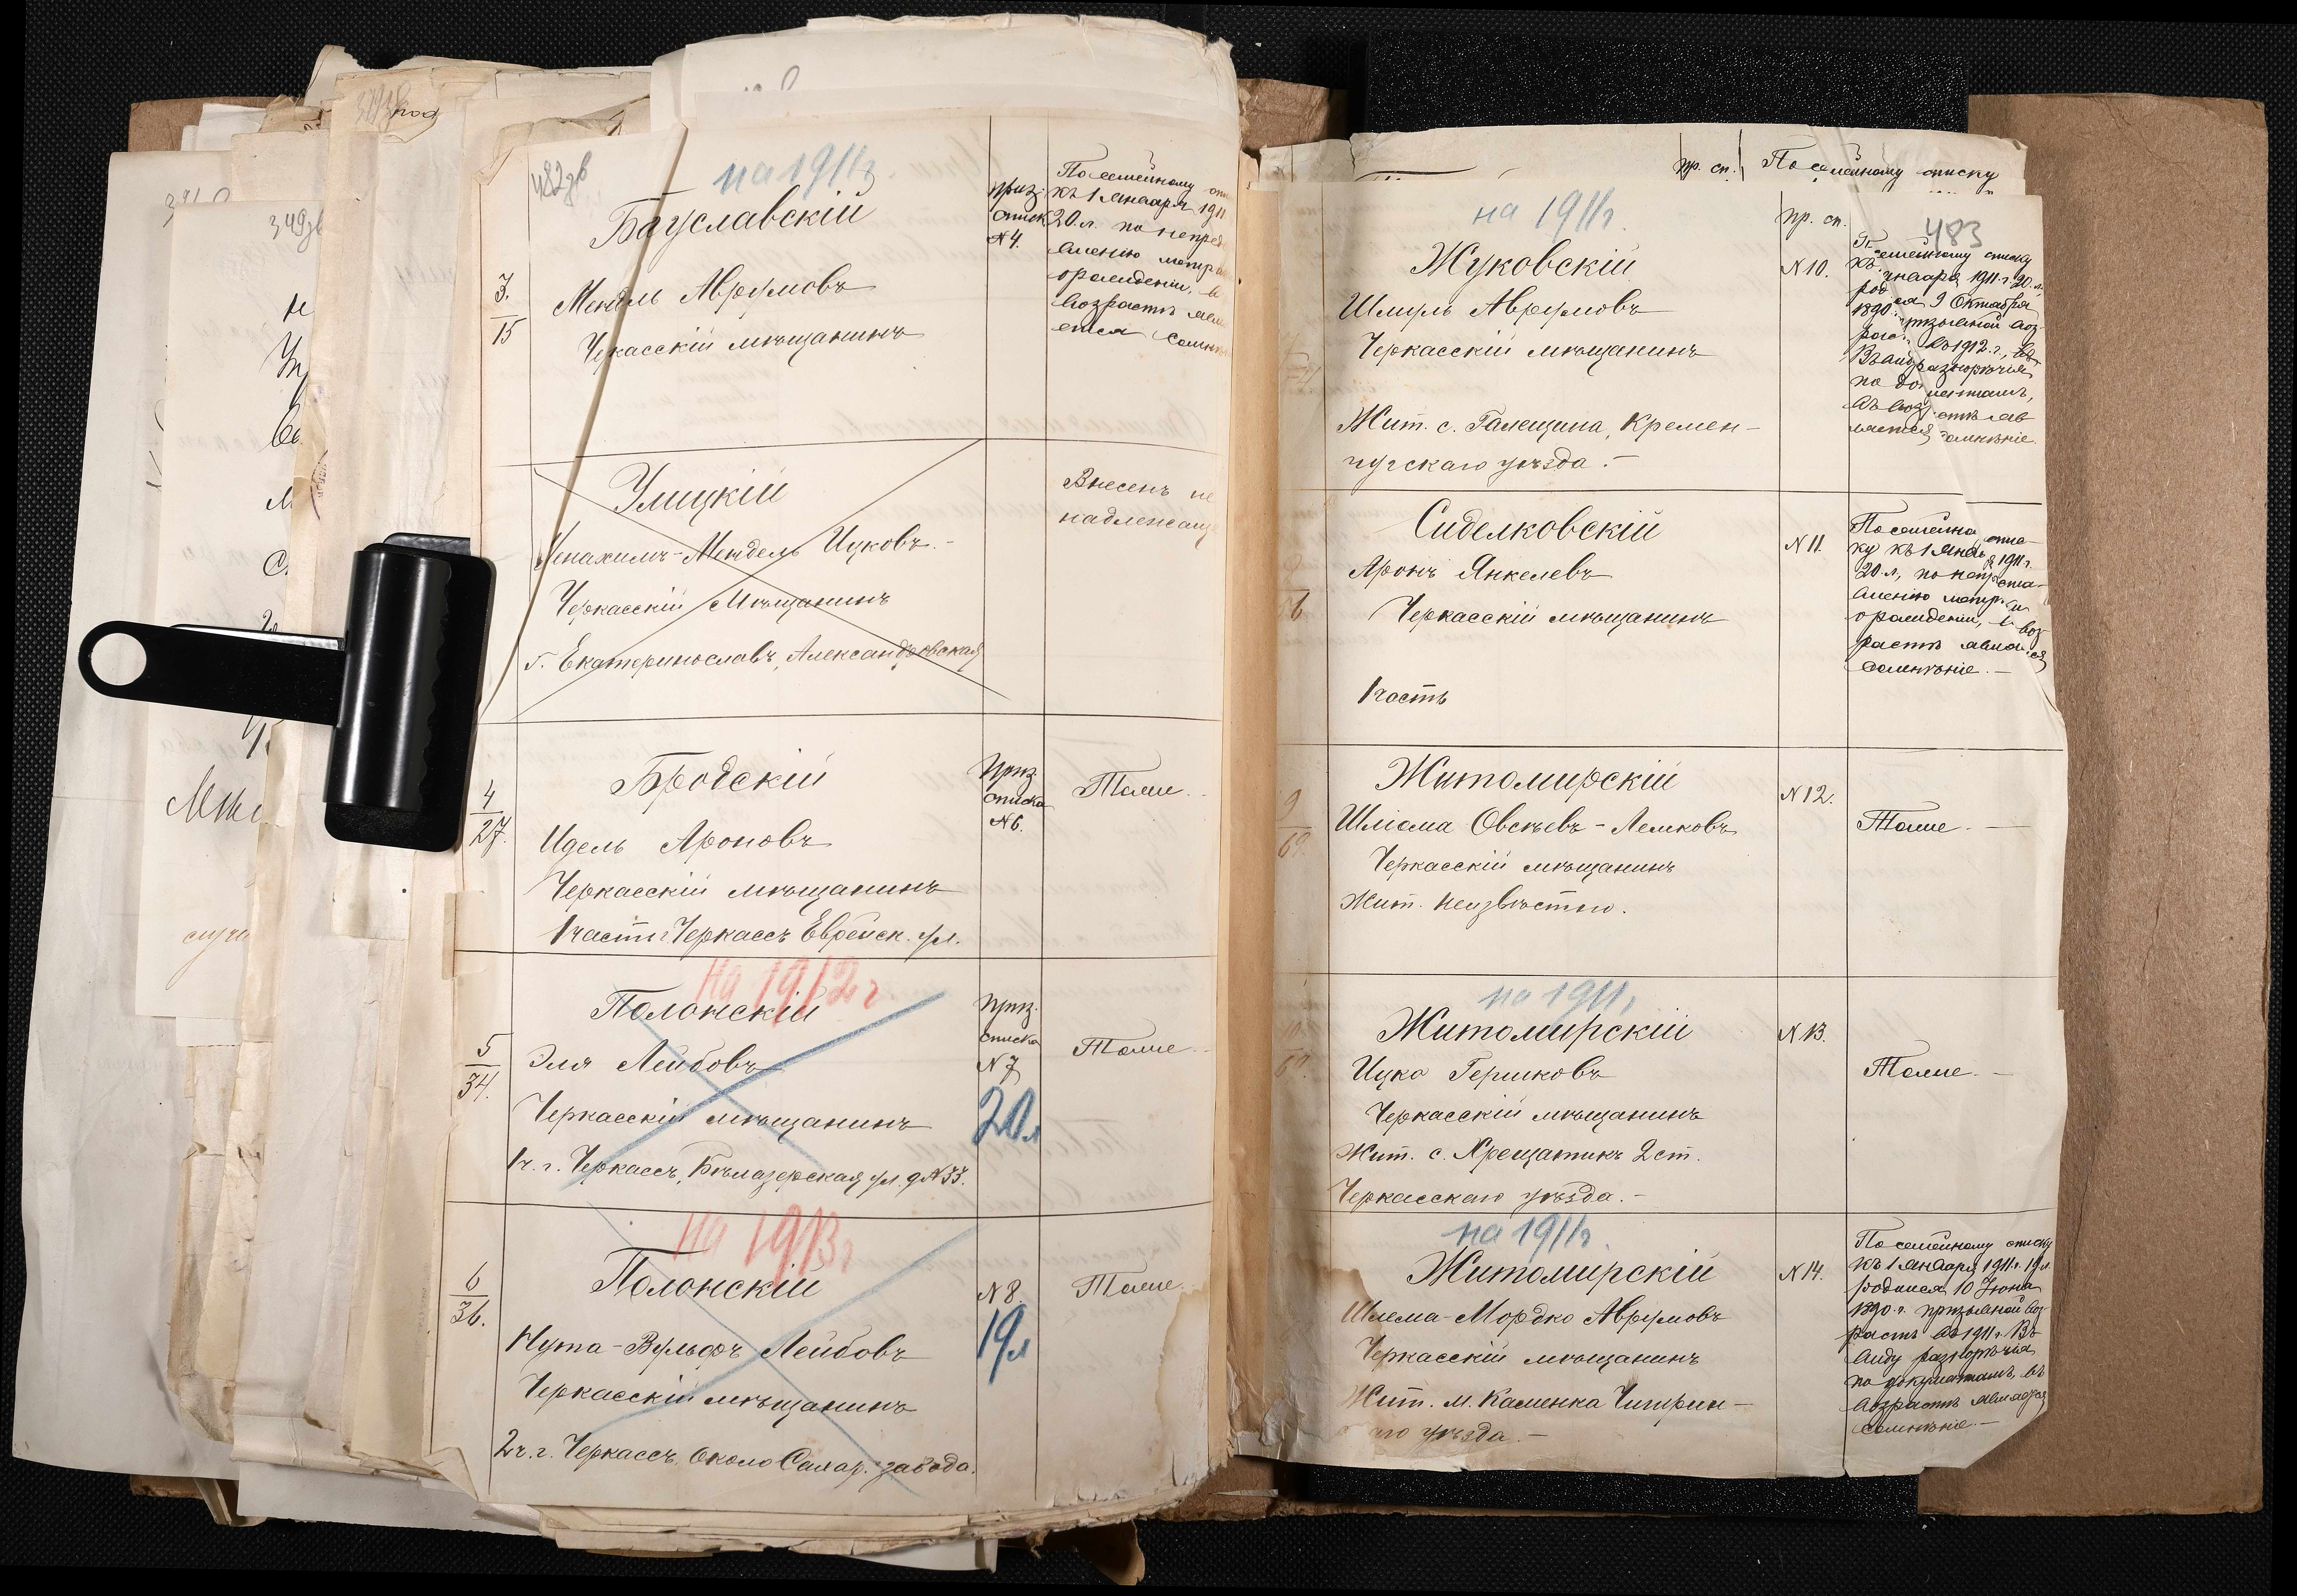 482 зв
на 1911 г.
Бауславскій
3.
15
Мендль Аврумовъ
Черкасскій мѣщанинъ
приз.
списк
№ 4.
По семейному спи
къ 1 Января 1911
20 л. по непред
ставленію метр
о рожденіи, в
возрастѣ явл
ется сомн
Улицкій
Менахимъ-Мендель Ицковъ.-
Черкасскій Мѣщанинъ
г. Екатеринославъ, Александровская
Внесенъ не
надлежащ
4
27.
Бродскій
Идель Ароновъ
Черкасскій мѣщанинъ
1 части г. Черкассъ Еврейск. ул.
Приз.
списка
№ 6.
Тоже.
на 1912 г
5
34.
Полонскій
Эля Лейбовъ
Черкасскій мѣщанинъ
1 ч. г. Черкассъ, Бѣлазерская ул. д № 33.
Приз.
списка
№ 7
20 л
Тоже.
на 1913 г
6
36.
Полонскій
Нута-Вульфъ Лейбовъ
Черкасскій мѣщанинъ
2 ч. г. Черкассъ. Около Сахар. завода.
№ 8.
19 л
Тоже.
пр. сп. По семейному списку
483
на 1911 г.
Жуковскій
Шмуль Аврумовъ
Черкасскій мѣщанинъ
Жит. с. Галещина, Кремен-
чугскаго уѣзда.-
пр. сп.
№ 10.
семейному списку
Января 1911 г. 20 л.
9 Октября
1890
въ 1912 г.,
разнорѣчія
сомнѣніе.
Сиделковскій
Аронъ Янкелевъ
Черкасскій мѣщанинъ
1 часть
№ 11.
По семейно спис-
ку къ 1 Янв 1911 г.
20 л, по непр ста-
вленію метр и
о рожденіи, в воз-
растѣ явля ся
сомнѣніе.-
Житомирскій
Шліома Овсѣевъ-Лейковъ
Черкасскій мѣщанинъ
Жит. неизвѣстно.
№ 12.
Тоже.-
на 1911 г
Житомирскій
Ицко Гершковъ
Черкасскій мѣщанинъ
Жит. с. Хрещатикъ 2 ст.
Черкасскаго уѣзда.-
№ 13.
Тоже.-
на 1911 г.
Житомирскій
Шлема-Мордко Аврумовъ
Черкасскій мѣщанинъ
Жит. м. Каменка Чигирин-
го уѣзда.-
№ 14.
По семейному списку
къ 1 Января 1911 г. 19 л.
родился 10 Іюня
1890 г. призывной воз
растъ въ 1911 г. Въ
виду разнорѣчія
по документамъ, въ
возрастѣ является
сомнѣніе.-